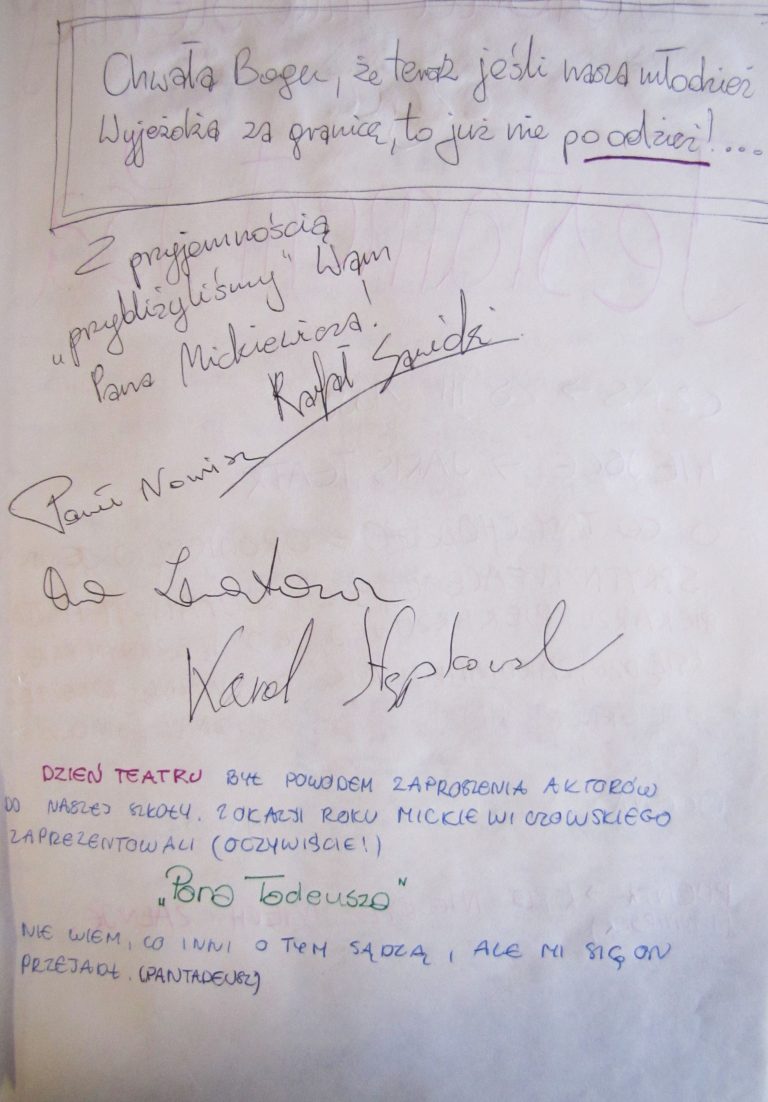 Chwała Bogu, że teraz jeśli nasza młodzież
wyjeżdża za granicę, to już nie po odzież!...
Z przyjemnością
„przybliżyliśmy" Wam
Pana Mickiewicza!
Rafał Sawicki
Paweł
Karol
DZIEŃ TEATRU BYŁ POWODEM ZAPROSZENIA AKTORÓW
DO NASZEJ SZKOŁY. Z OKAZJI ROKU MICKIEWICZOWSKIEGO
ZAPREZENTOWALI (OCZYWIŚCIE!)
„Pana Tadeusza"
NIE WIEM, CO INNI O TYM SĄDZĄ, ALE MI SIĘ ON
PRZEJADŁ. (PAN TADEUSZ)